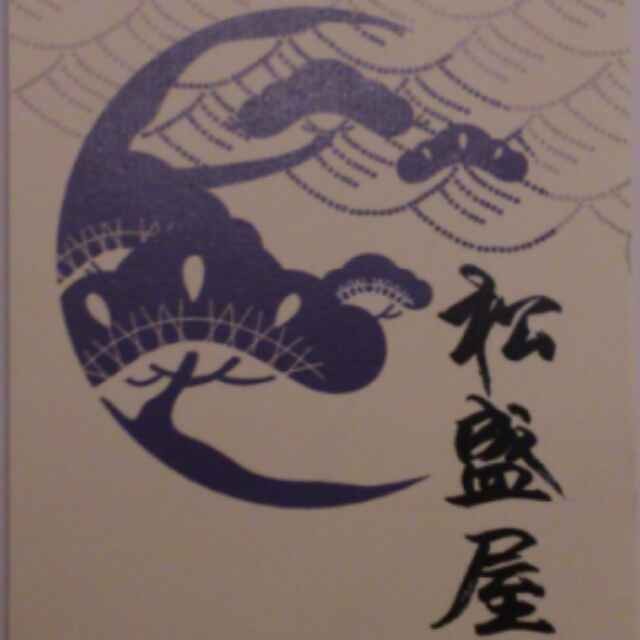 松盛屋